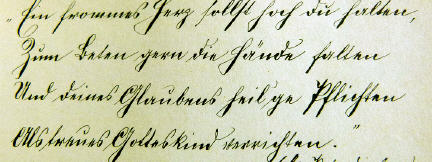 „Ein frommes Herz sollst hoch du halten,
Zum Beten gern die Hände falten
Und deines Glaubens heil'ge Pflichten
Als treues Gotteskind verrichten."